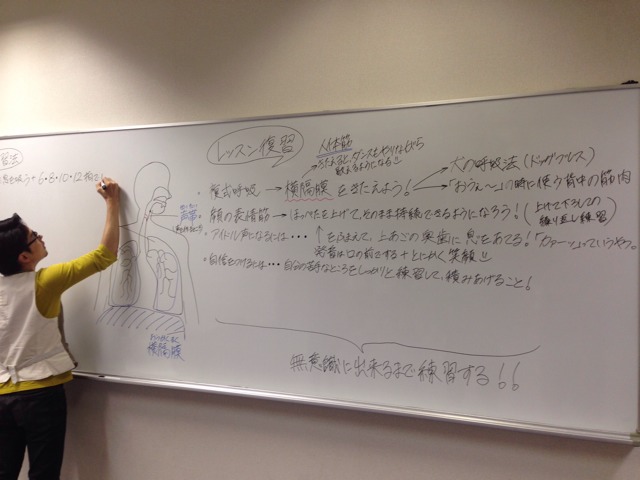 習法
息を吸う→6・8・10・12拍で
レッスン復習
人体筋
きたえると、ダンスをやりながら
歌えるようになる!!
・腹式呼吸 → 横隔膜 をきたえよう!
犬の呼吸法 (ドッグブレス)
「おうえ〜」の時に使う背中の筋肉
・顔の表情筋 → ほっぺたを上げて、そのまま持続できるようになろう! (上げて下ろしての
繰り返し練習)
・アイドル声になるには・・・ ↑をふまえて、上あごの奥歯に息をあてる!「カァーッ」っていうやつ。
発音は口の前でする + とにかく笑顔
・自信をつけるには・・・自分の苦手なところをしっかりと練習して、積みあげること!
声帯
おうかくまく
横隔膜
無意識に出来るまで練習する!!